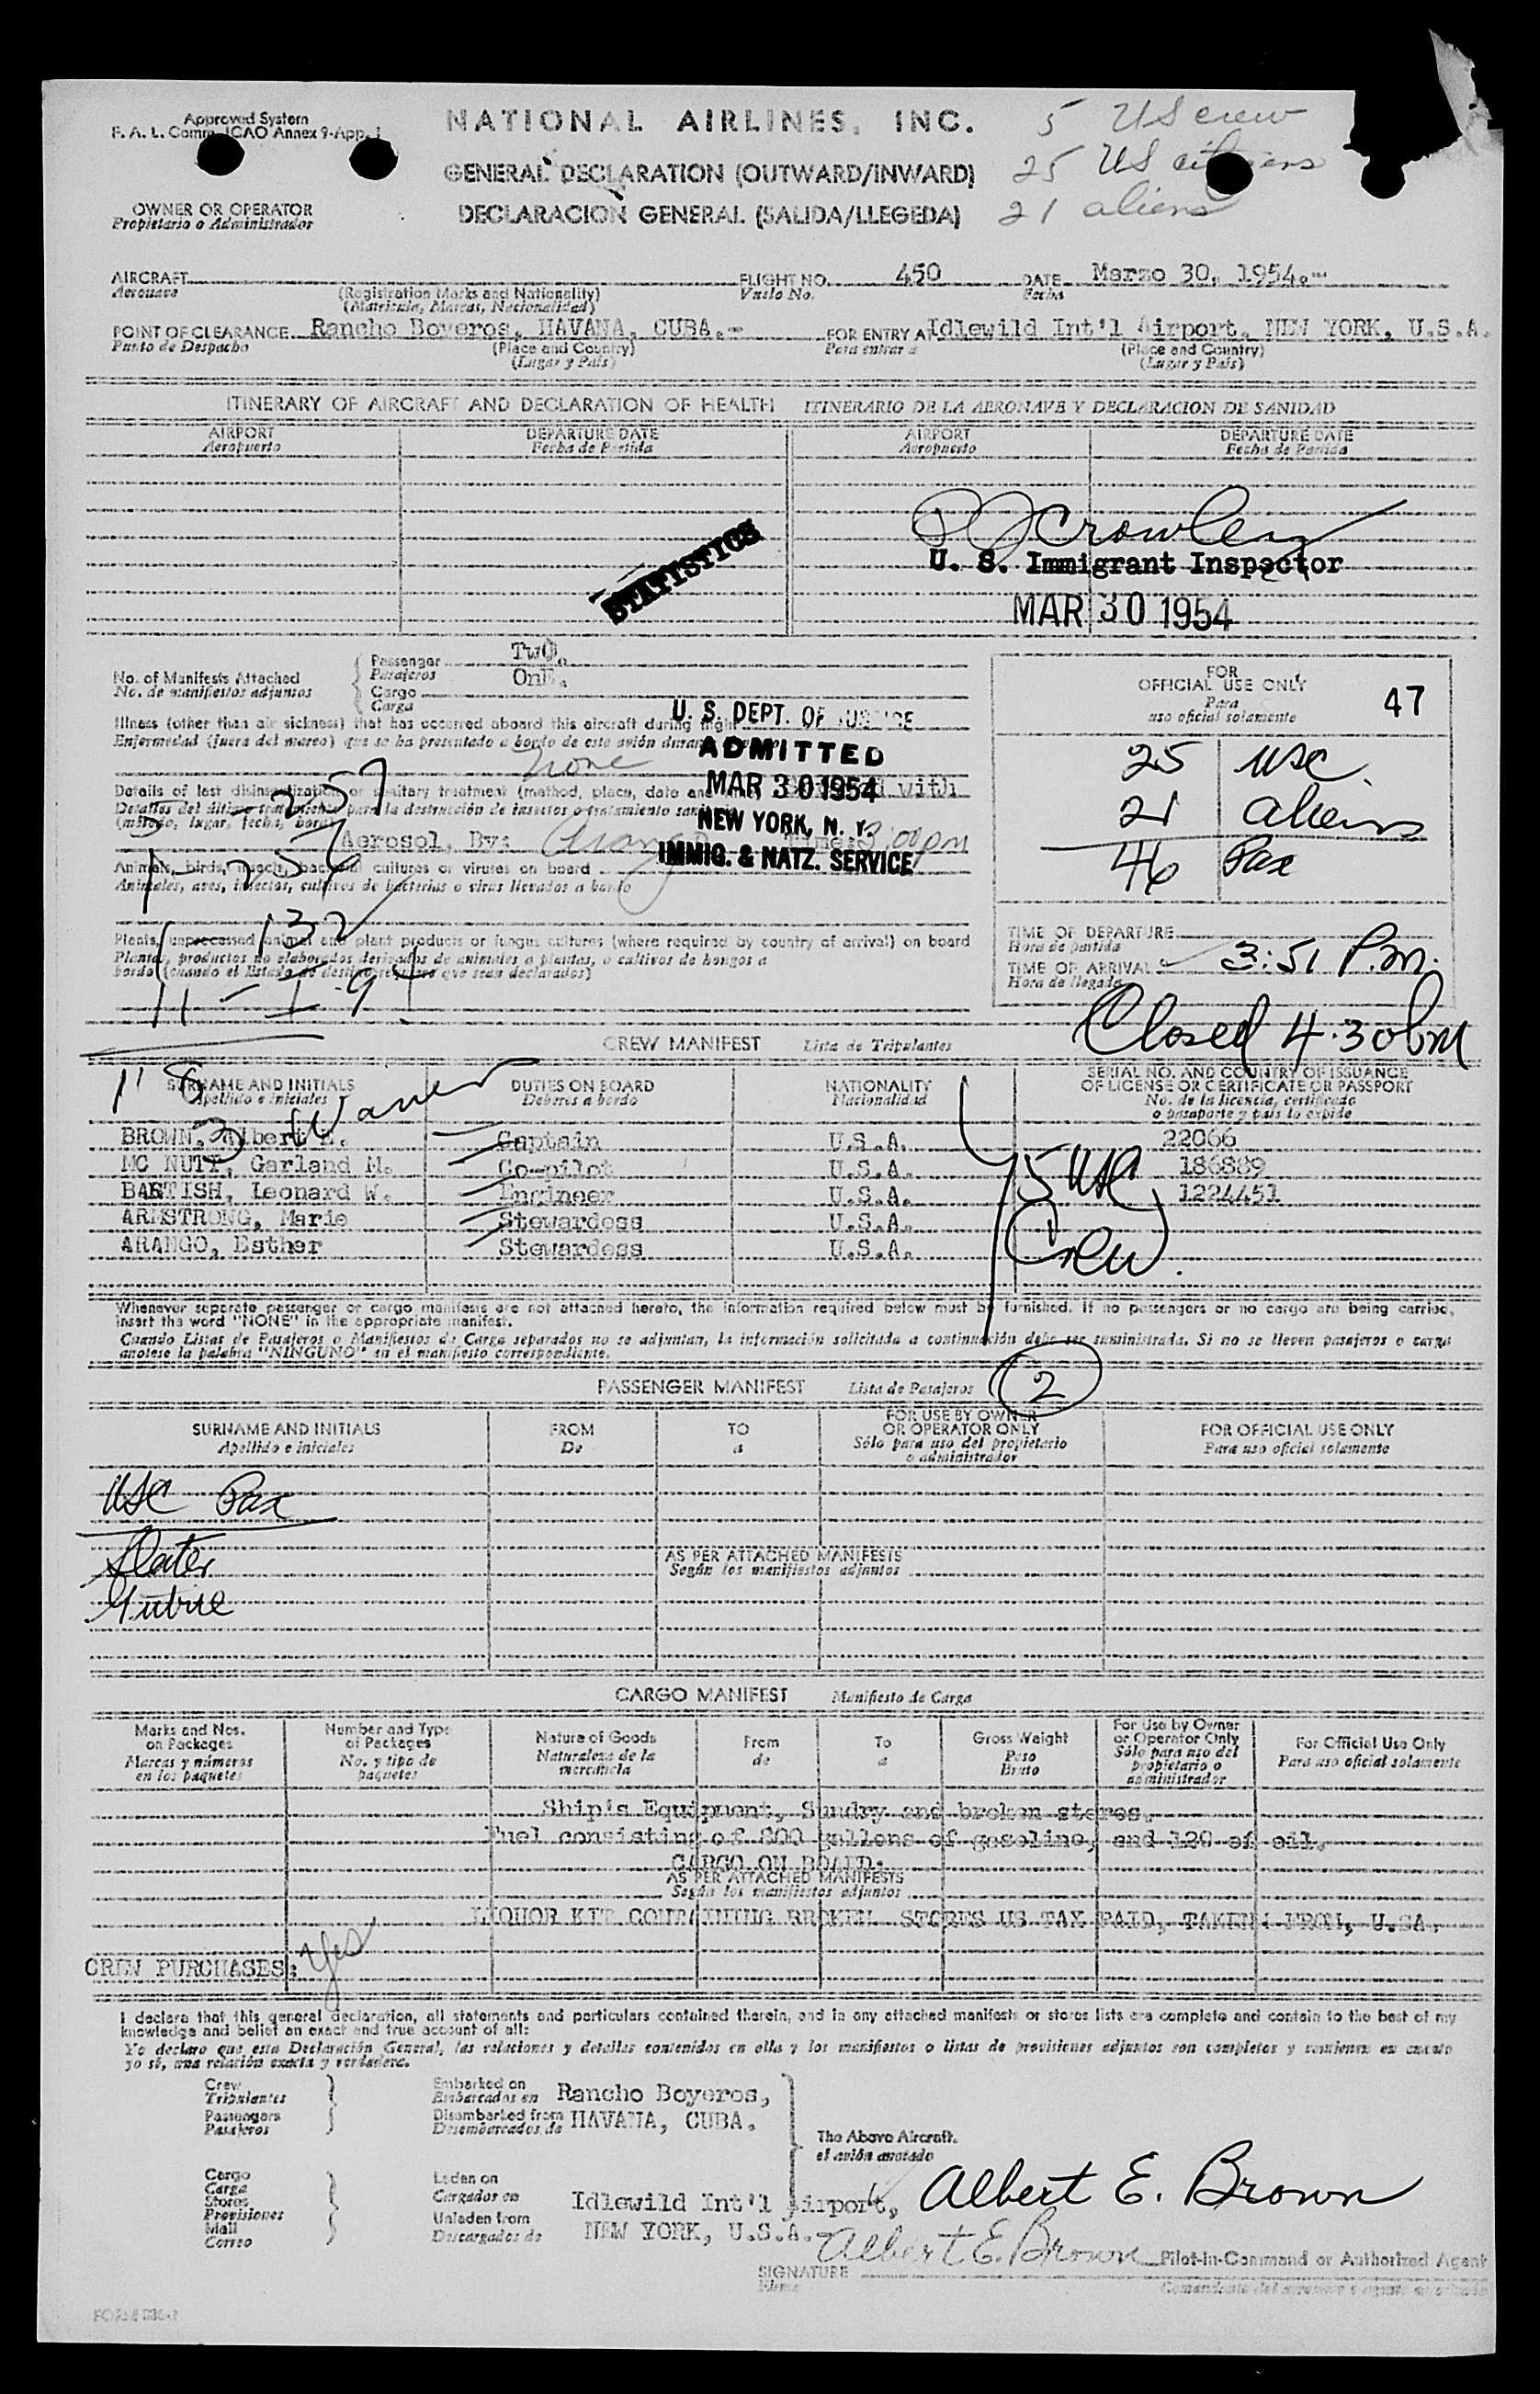 Approved System
F. A. L. Comm. ICAO Annex 9-App. 1
NATIONAL AIRLINES, INC.
5 US crew
GENERAL DECLARATION (OUTWARD/INWARD)
25 US citizens
OWNER OR OPERATOR
Propietario o Administrador
DECLARACION GENERAL (SALIDA/LLEGEDA)
21 aliens
AIRCRAFT
Aeronave
(Registration Marks and Nationality)
(Matricula, Marcas, Nacionalidad)
FLIGHT NO. 450
Vuelo No.
DATE Marzo 30, 1954.-
Fecha
POINT OF CLEARANCE Rancho Boyeros, HAVANA, CUBA.-
Punto de Despacho
(Place and Country)
(Lugar y País)
FOR ENTRY AT Idlewild Int'l Airport, NEW YORK, U.S.A.
Para entrar a
(Place and Country)
(Lugar y País)
ITINERARY OF AIRCRAFT AND DECLARATION OF HEALTH ITINERARIO DE LA AERONAVE Y DECLARACION DE SANIDAD
AIRPORT DEPARTURE DATE AIRPORT DEPARTURE DATE
Aeropuerto Fecha de Partida Aeropuerto Fecha de Partida
P J Crowley
U. S. Immigrant Inspector
STATISTICS
MAR 30 1954
No. of Manifests Attached
No. de manifiestos adjuntos
Passenger Two.
Pasajeros
Cargo One.
Carga
FOR
OFFICIAL USE ONLY
Para
uso oficial solamente
47
Illness (other than air sickness) that has occurred aboard this aircraft during flight
Enfermedad (fuera del mareo) que se ha presentado a bordo de este avión
none
U. S. DEPT. OF JUSTICE
ADMITTED
MAR 30 1954
NEW YORK, N. Y.
IMMIG. & NATZ. SERVICE
25 USC.
21 aliens
46 Pax
Details of last disinsectization or sanitary treatment (method, place, date and with
Detalles del último tratamiento para la destrucción de insectos o tratamiento
(método, lugar, fecha, hora)
Aerosol, By: Arango Time: 3:00pm
Animals, birds, insects, bacterial cultures or viruses on board
Animales, aves, insectos, cultivos de bacterias o virus llevados a bordo
Plants, unprocessed animal and plant products or fungus cultures (where required by country of arrival) on board
Plantas, productos no elaborados derivados de animales o plantas, o cultivos de hongos a
bordo (cuando el Estado de destino requiere que sean declarados)
257
132
11 - I-94
18
3 Waner
TIME OF DEPARTURE
Hora de partida
TIME OF ARRIVAL 3:51 P.m.
Hora de llegada
Closed 4:30 pm
CREW MANIFEST Lista de Tripulantes
SURNAME AND INITIALS
Apellido e iniciales
DUTIES ON BOARD
Deberes a bordo
NATIONALITY
Nacionalidad
SERIAL NO. AND COUNTRY OF ISSUANCE
OF LICENSE OR CERTIFICATE OR PASSPORT
No. de la licencia, certificado
o pasaporte y país lo expide
BROWN, Albert E. Captain U.S.A. 22066
MC NUTT, Garland M. Co-pilot U.S.A. 186889
BARTISH, Leonard W. Engineer U.S.A. 1224451
ARMSTRONG, Marie Stewardess U.S.A.
ARANGO, Esther Stewardess U.S.A.
5 USC
Crew.
Whenever separate passenger or cargo manifests are not attached hereto, the information required below must be furnished. If no passengers or no cargo are being carried,
insert the word "NONE" in the appropriate manifest.
Cuando Listas de Pasajeros o Manifiestos de Carga separados no se adjuntan, la información solicitada a continuación debe ser suministrada. Si no se lleven pasajeros o carga
anotese la palabra "NINGUNO" en el manifiesto correspondiente.
PASSENGER MANIFEST Lista de Pasajeros 2
SURNAME AND INITIALS
Apellido e iniciales
FROM
De
TO
a
FOR USE BY OWNER
OR OPERATOR ONLY
Sólo para uso del propietario
o administrador
FOR OFFICIAL USE ONLY
Para uso oficial solamente
USC Pax
Slater
AS PER ATTACHED MANIFESTS
Según los manifiestos adjuntos
CARGO MANIFEST Manifiesto de Carga
Marks and Nos.
on Packages
Marcas y números
en los paquetes
Number and Type
of Packages
No. y tipo de
paquetes
Nature of Goods
Naturaleza de la
mercancía
From
de
To
a
Gross Weight
Peso
Bruto
For Use by Owner
or Operator Only
Sólo para uso del
propietario o
administrador
For Official Use Only
Para uso oficial solamente
Ship's Equipment, Sundry and broken stores.
Fuel consisting of 800 gallons of gasoline, and 120 of oil.
CARGO ON BOARD:
AS PER ATTACHED MANIFESTS
Según los manifiestos adjuntos
LIQUOR KIT CONTAINING BROKEN STORES US TAX PAID, TAKEN FROM, U.SA.
CREW PURCHASES: Yes
I declare that this general declaration, all statements and particulars contained therein, and in any attached manifests or stores lists are complete and contain to the best of my
knowledge and belief an exact and true account of all:
Yo declaro que esta Declaración General, las relaciones y detalles contenidos en ella y los manifiestos o listas de provisiones adjuntos son completos y contienen en cuanto
yo sé, una relación exacta y verdadera.
Crew
Tripulantes
Passengers
Pasajeros
Embarked on
Embarcados en
Disembarked from
Desembarcados de
Rancho Boyeros,
HAVANA, CUBA.
The Above Aircraft.
el avión anotado
Cargo
Carga
Stores
Provisiones
Mail
Correo
Laden on
Cargados en
Unladen from
Descargados de
Idlewild Int'l Airport,
NEW YORK, U.S.A.-
Albert E. Brown
Albert E. Brown
SIGNATURE
Firma
Pilot-in-Command or Authorized Agent